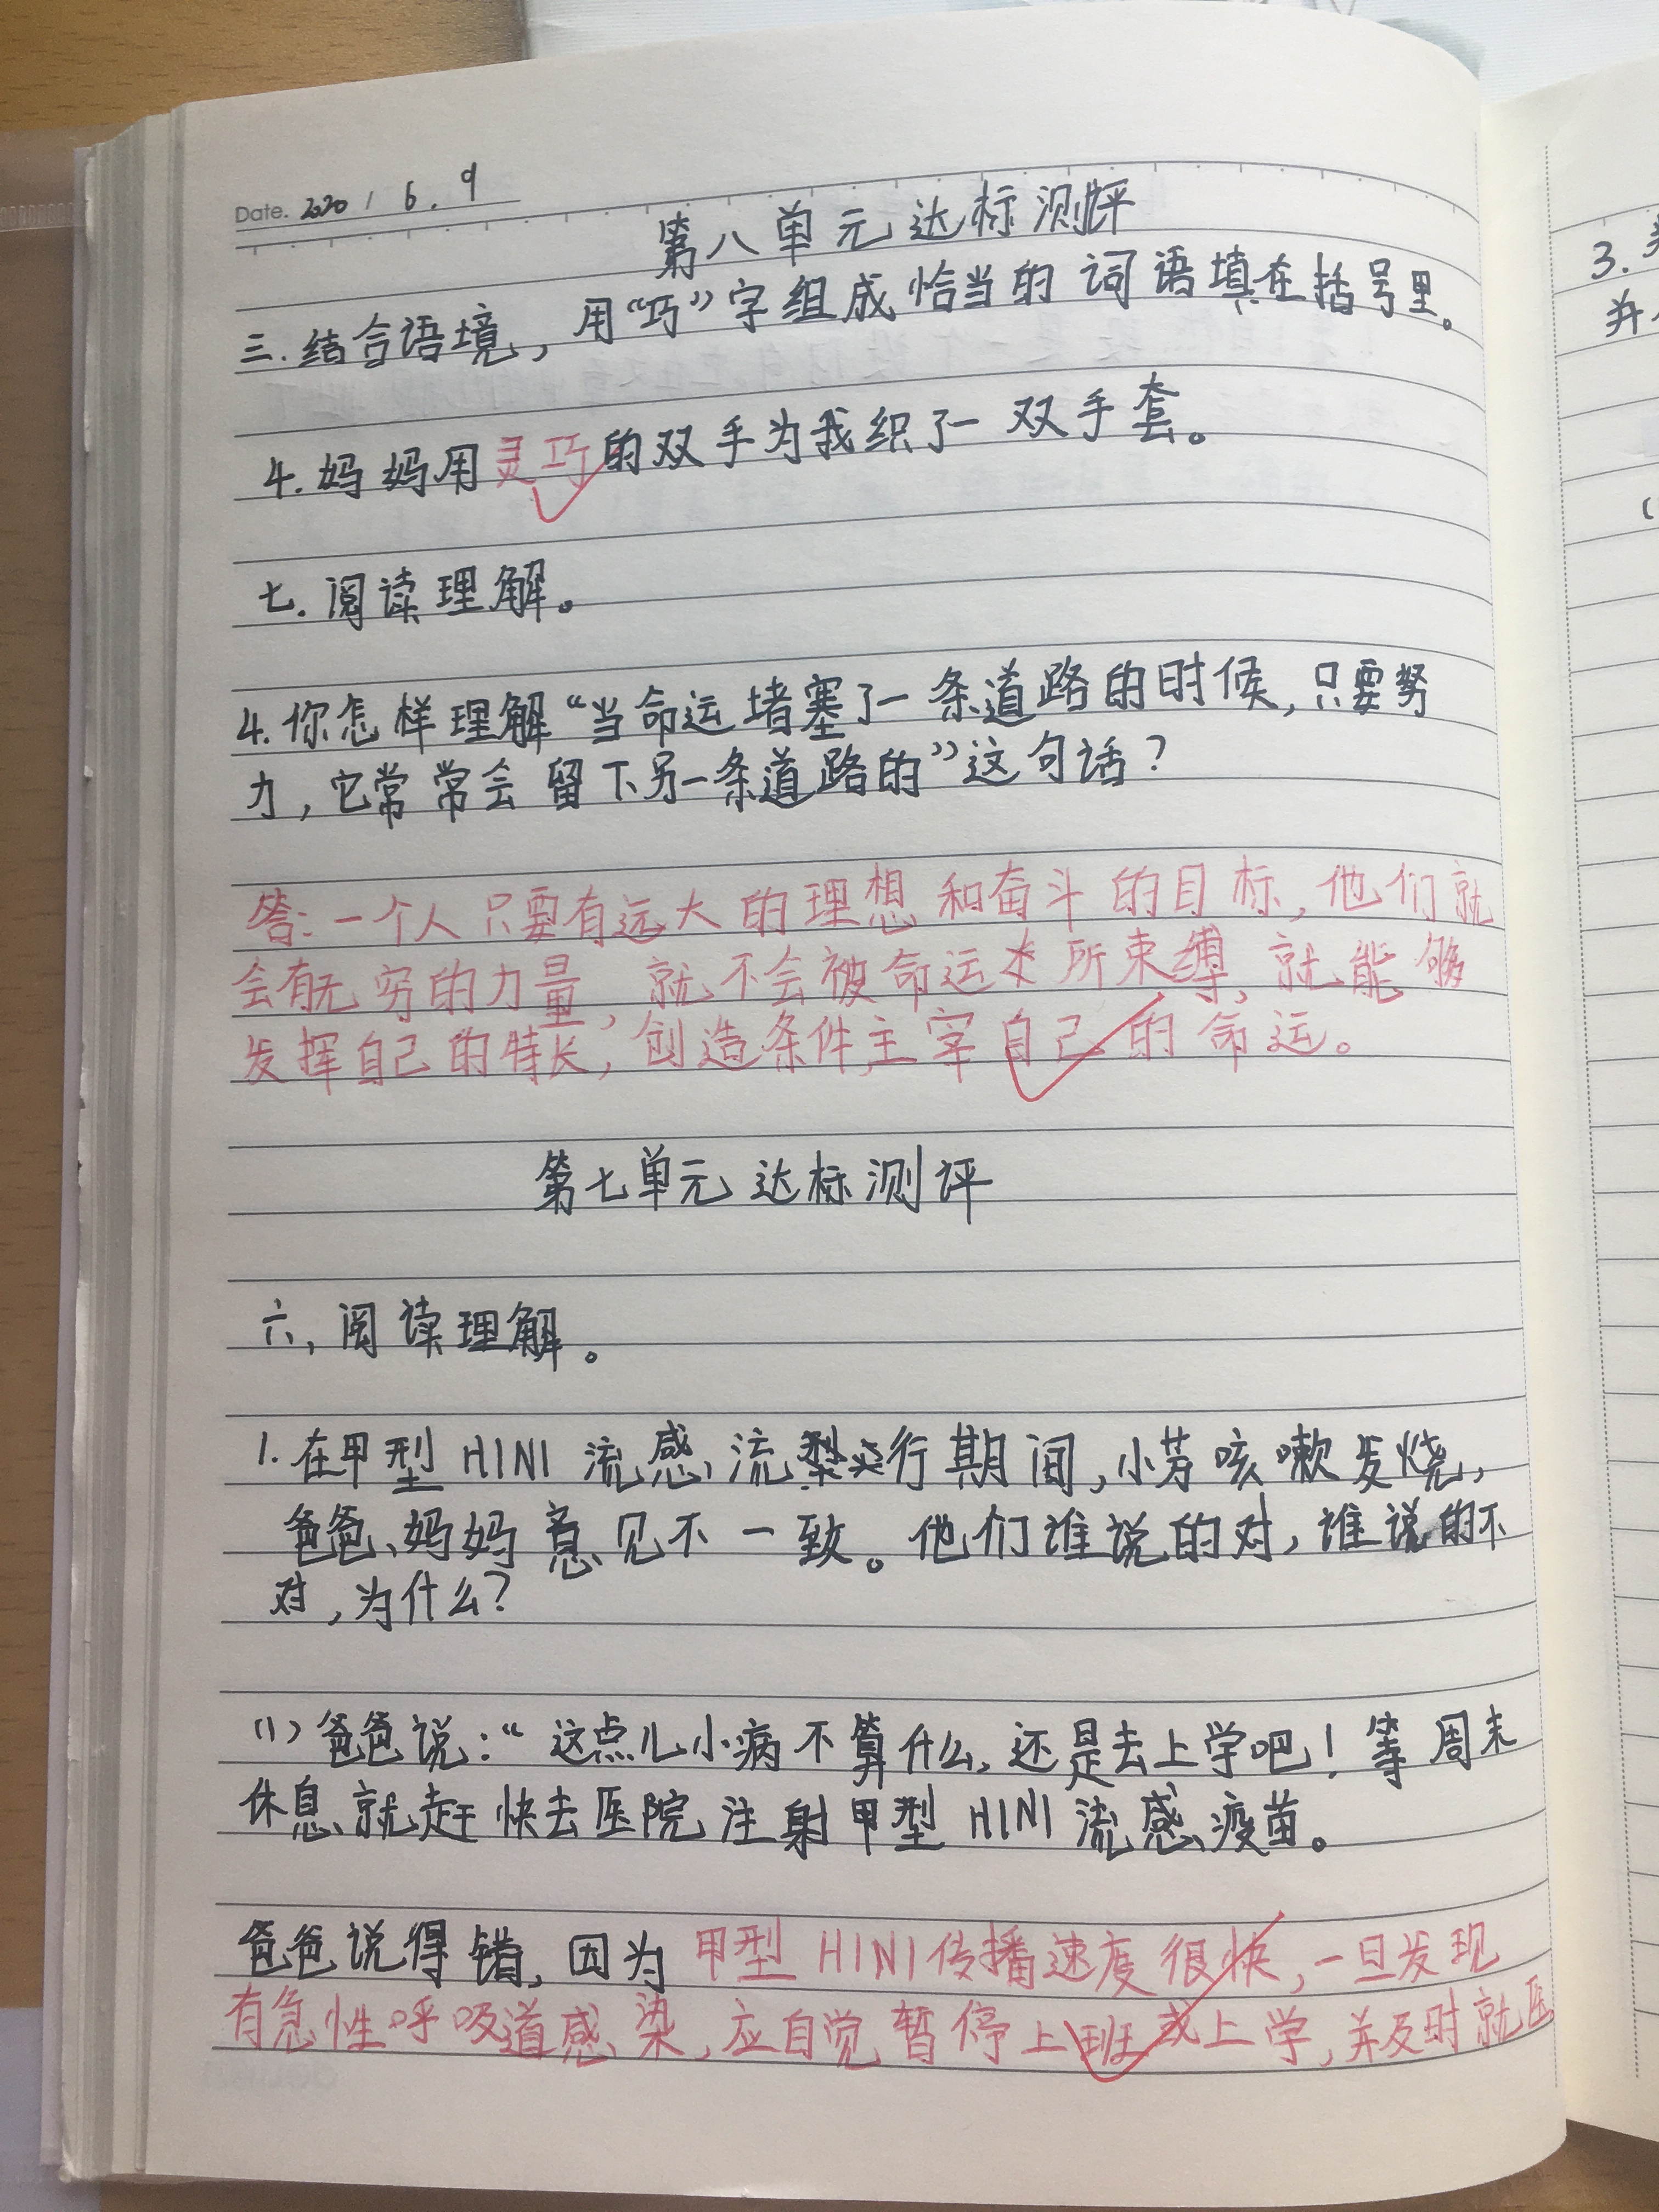 Date. 2020 / 6. 9
第八单元达标测评
三.结合语境，用“巧”字组成恰当的词语填在括号里。
4.妈妈用灵巧的双手为我织了一双手套。
七.阅读理解。
4.你怎样理解“当命运堵塞了一条道路的时候，只要努
力，它常常会留下另一条道路的”这句话？
答：一个人只要有远大的理想和奋斗的目标，他们就
会有无穷的力量，就不会被命运所束缚，就能够
发挥自己的特长，创造条件，主宰自己的命运。
第七单元达标测评
六，阅读理解。
1.在甲型H1N1流感流行期间，小芳咳嗽发烧，
爸爸、妈妈意见不一致。他们谁说的对，谁说的不
对，为什么？
(1)爸爸说：“这点儿小病不算什么，还是去上学吧！等周末
休息就赶快去医院注射甲型H1N1流感疫苗。
爸爸说得错，因为甲型H1N1传播速度很快，一旦发现
有急性呼吸道感染，应自觉暂停上班或上学，并及时就医
3.
并
(